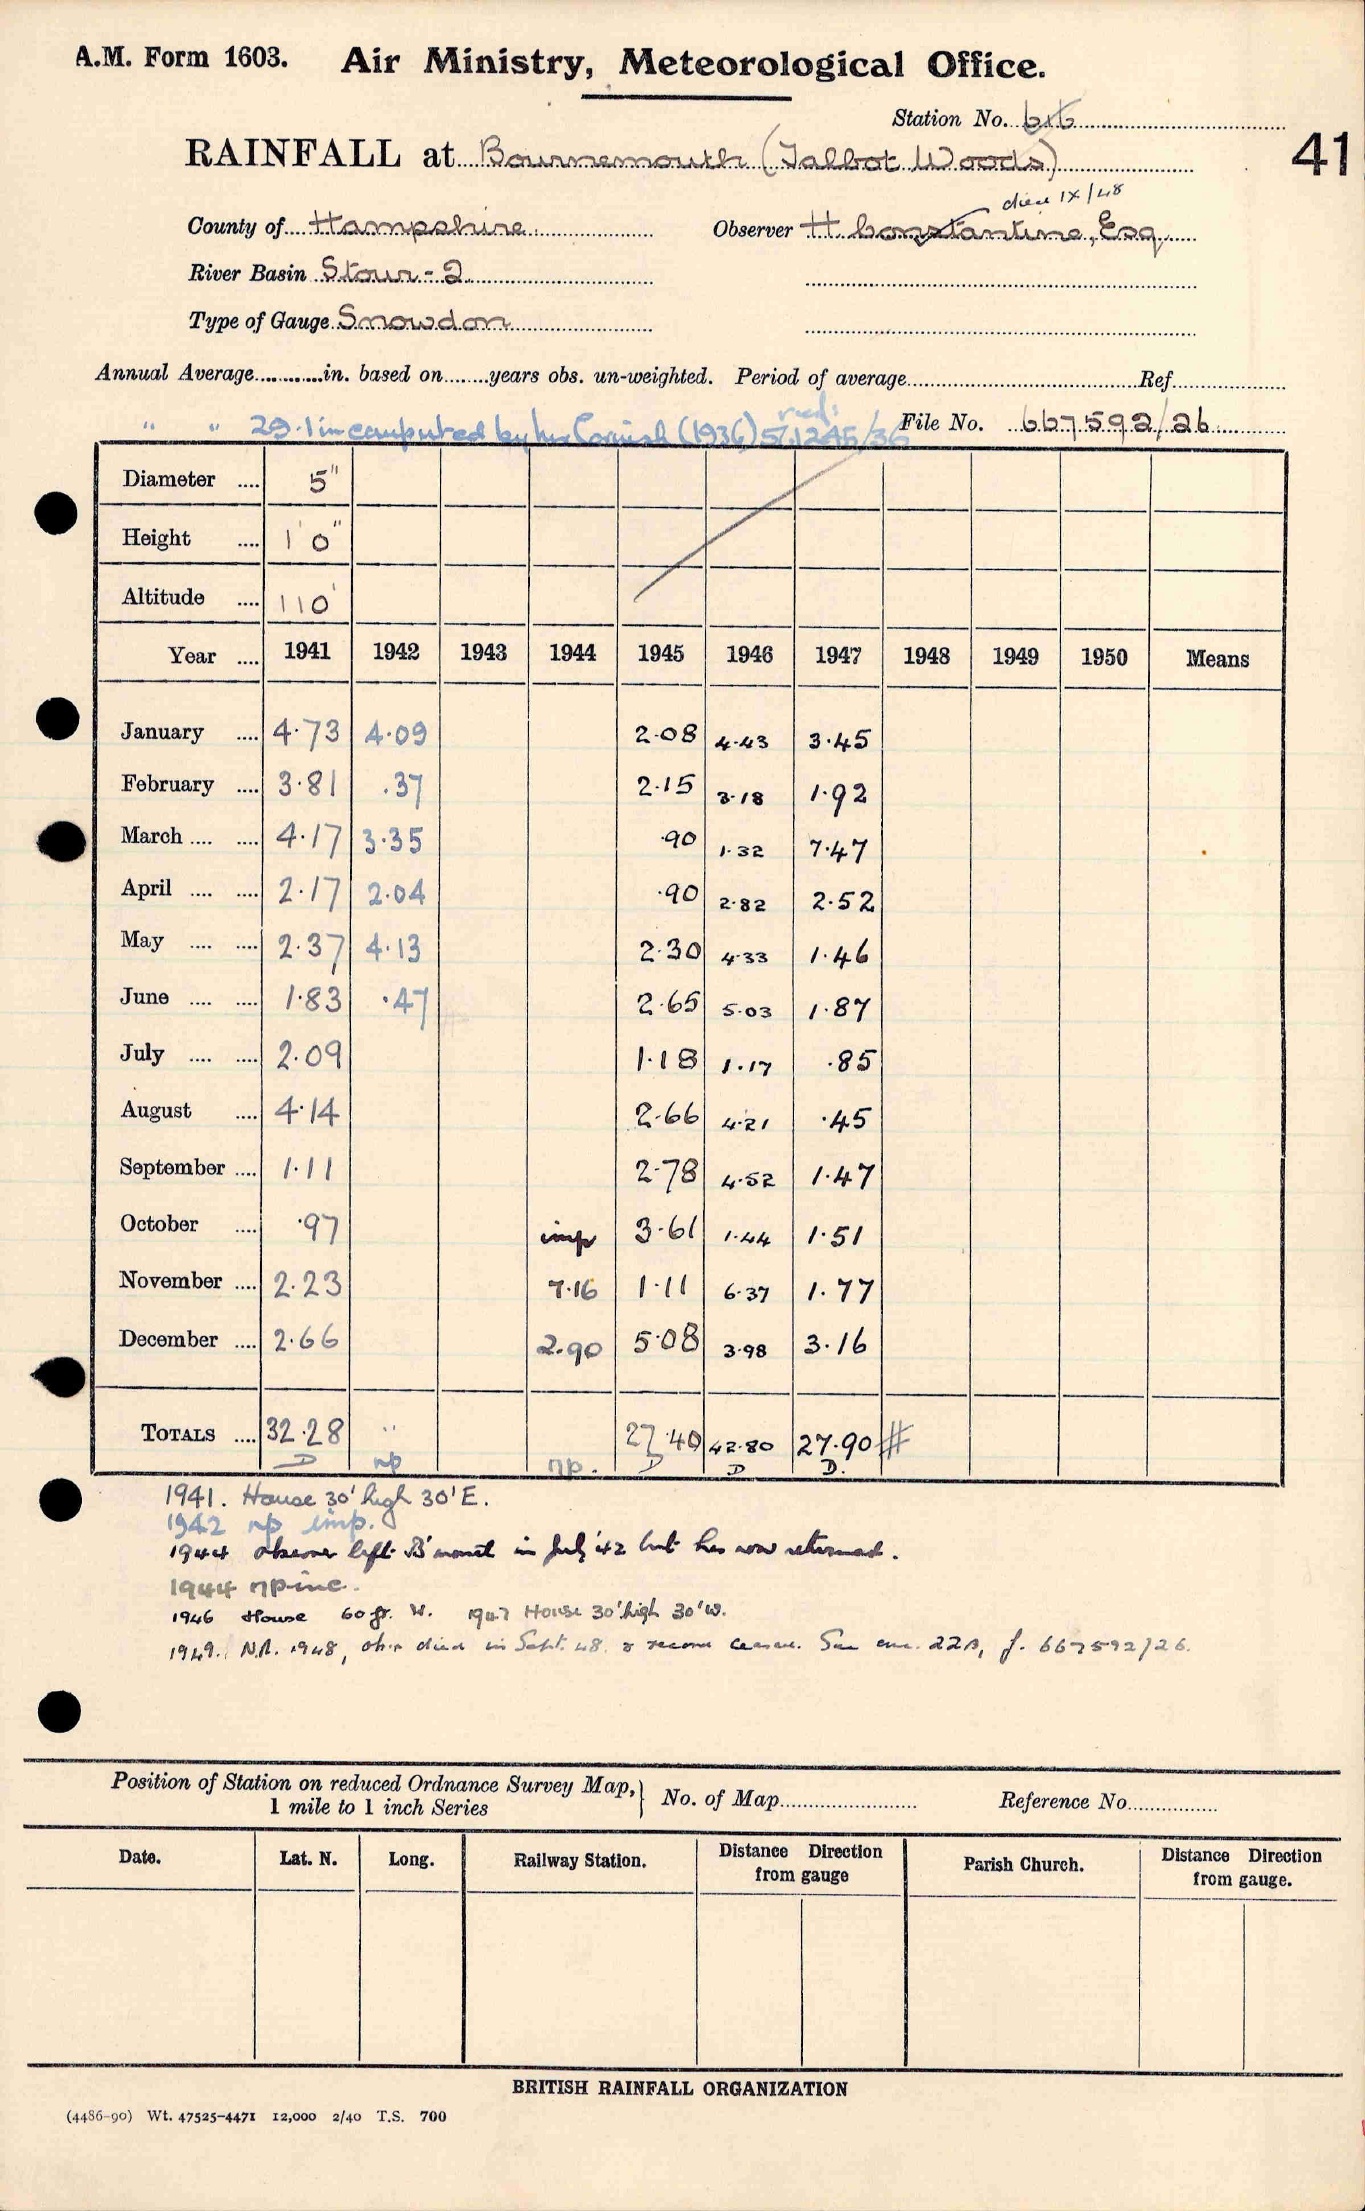 A.M. Form 1603. Air Ministry, Meteorological Office.
Station No. 616
41
RAINFALL at Bournemouth (Talbot Woods)
died IX/48
County of Hampshire Observer H. Constantine, Esq
River Basin Stour-2
Type of Gauge Snowdon
Annual Average............in. based on........years obs. un-weighted. Period of average........Ref........
" " 29.1 in computed by Mr Cornish (1936) 57.1245/36 File No. 667592/26
Diameter .... 5"
Height .... 1' 0"
Altitude .... 110'
Year .... 1941 1942 1943 1944 1945 1946 1947 1948 1949 1950 Means
January .... 4.73 4.09 2.08 4.43 3.45
February .... 3.81 .37 2.15 3.18 1.92
March .... .... 4.17 3.35 .90 1.32 7.47
April .... .... 2.17 2.04 .90 2.82 2.52
May .... .... 2.37 4.13 2.30 4.33 1.46
June .... .... 1.83 .47 2.65 5.03 1.87
July .... .... 2.09 1.18 1.17 .85
August .... 4.14 2.66 4.21 .45
September .... 1.11 2.78 4.52 1.47
October .... .97 imp 3.61 1.44 1.51
November .... 2.23 7.16 1.11 6.37 1.77
December .... 2.66 2.90 5.08 3.98 3.16
TOTALS .... 32.28 27.40 42.80 27.90 #
D np np. D D D.
1941. House 30' high 30' E.
1942 np imp.
1944 observer left B'mouth in July '42 but has now returned.
1944 np inc.
1946 House 60 ft. W. 1947 House 30' high 30' W.
1949. N.R. 1948, obsr died in Sept. 48 & record ceased. See enc. 22A, f. 667592/26.
Position of Station on reduced Ordnance Survey Map, } No. of Map........ Reference No........
1 mile to 1 inch Series
Date. Lat. N. Long. Railway Station. Distance Direction from gauge Parish Church. Distance Direction from gauge.
BRITISH RAINFALL ORGANIZATION
(4486-90) Wt. 47525-4471 12,000 2/40 T.S. 700